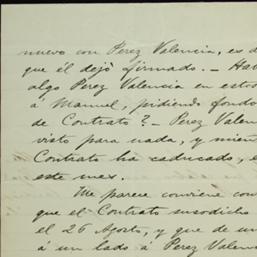 nuevo con Perez Valencia, es d
que él dejó firmado. – Hab
algo Perez Valencia en estos
á Manuel, pidiendo fondo
de Contrato? – Perez Valen
visto para nada, y mién
Contrato ha caducado, e
este mes.
Me parece conviene con
que el Contrato susodicho
el 26 Agosto, y que de un
á un lado á Perez Valen